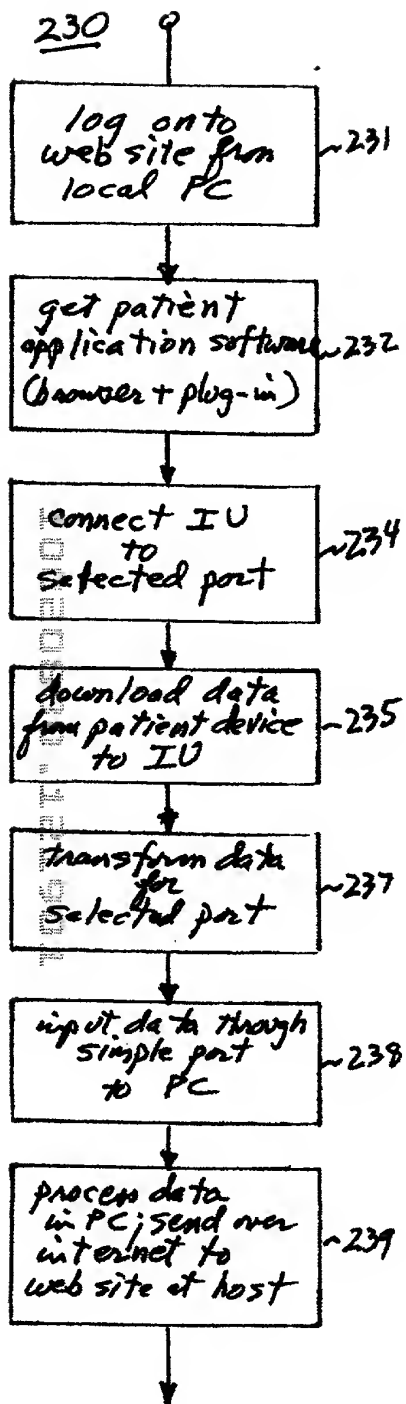 230
log onto
web site from
local PC
~231
get patient
application software
(browser + plug-in)
~232
connect IU
to
selected port
~234
download data
from patient device
to IU
~235
transform data
for
selected port
~237
input data through
simple port
to PC
~238
process data
in PC; send over
internet to
web site at host
~239